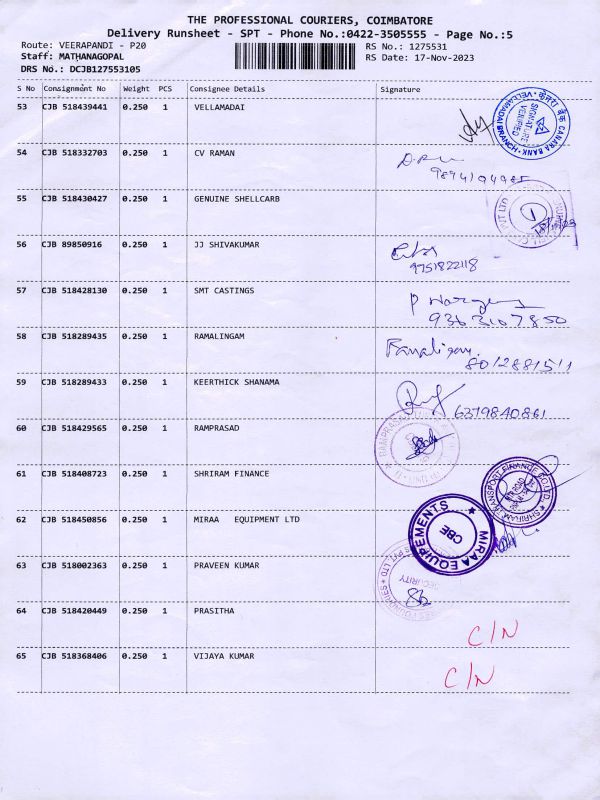 THE PROFESSIONAL COURIERS, COIMBATORE
Delivery Runsheet - SPT - Phone No.:0422-3505555 - Page No.:5
Route: VEERAPANDI - P20
RS No.: 1275531
Staff: MATHANAGOPAL
RS Date: 17-Nov-2023
DRS No.: DCJB127553105
S No Consignment No Weight PCS Consignee Details Signature
53 CJB 518439441 0.250 1 VELLAMADAI
CANARA BANK VELLAMADAI BRANCH SIGNATURE VERIFIED
54 CJB 518332703 0.250 1 CV RAMAN
55 CJB 518430427 0.250 1 GENUINE SHELLCARB
PVT LTD
56 CJB 89850916 0.250 1 JJ SHIVAKUMAR
9751822118
57 CJB 518428130 0.250 1 SMT CASTINGS
9363167850
58 CJB 518289435 0.250 1 RAMALINGAM
Ramalingam.
8012881511
59 CJB 518289433 0.250 1 KEERTHICK SHANAMA
6379840861
60 CJB 518429565 0.250 1 RAMPRASAD
61 CJB 518408723 0.250 1 SHRIRAM FINANCE
SHRIRAM TRANSPORT FINANCE CO.LTD.
62 CJB 518450856 0.250 1 MIRAA EQUIPMENT LTD
MIRAA EQUIPEMENTS CBE
63 CJB 518002363 0.250 1 PRAVEEN KUMAR
SECURITY
64 CJB 518420449 0.250 1 PRASITHA
C/N
65 CJB 518368406 0.250 1 VIJAYA KUMAR
C/N